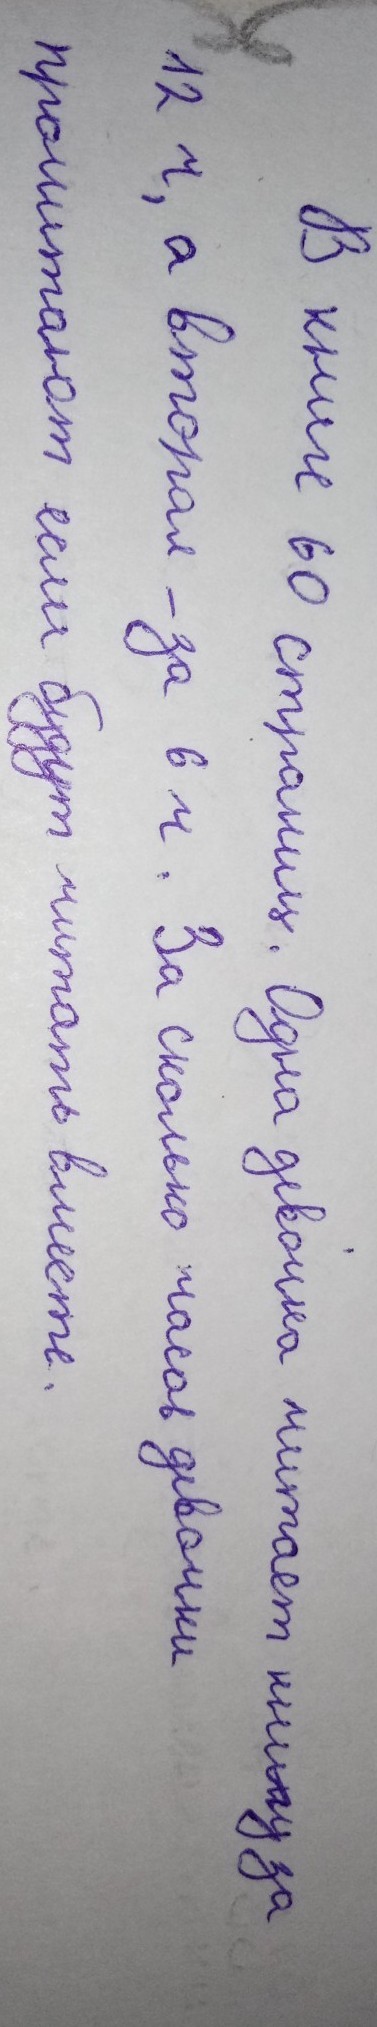 В книге 60 страниц. Одна девочка читает книгу за
12 ч, а вторая - за 6 ч. За сколько часов девочки
прочитают если будут читать вместе.